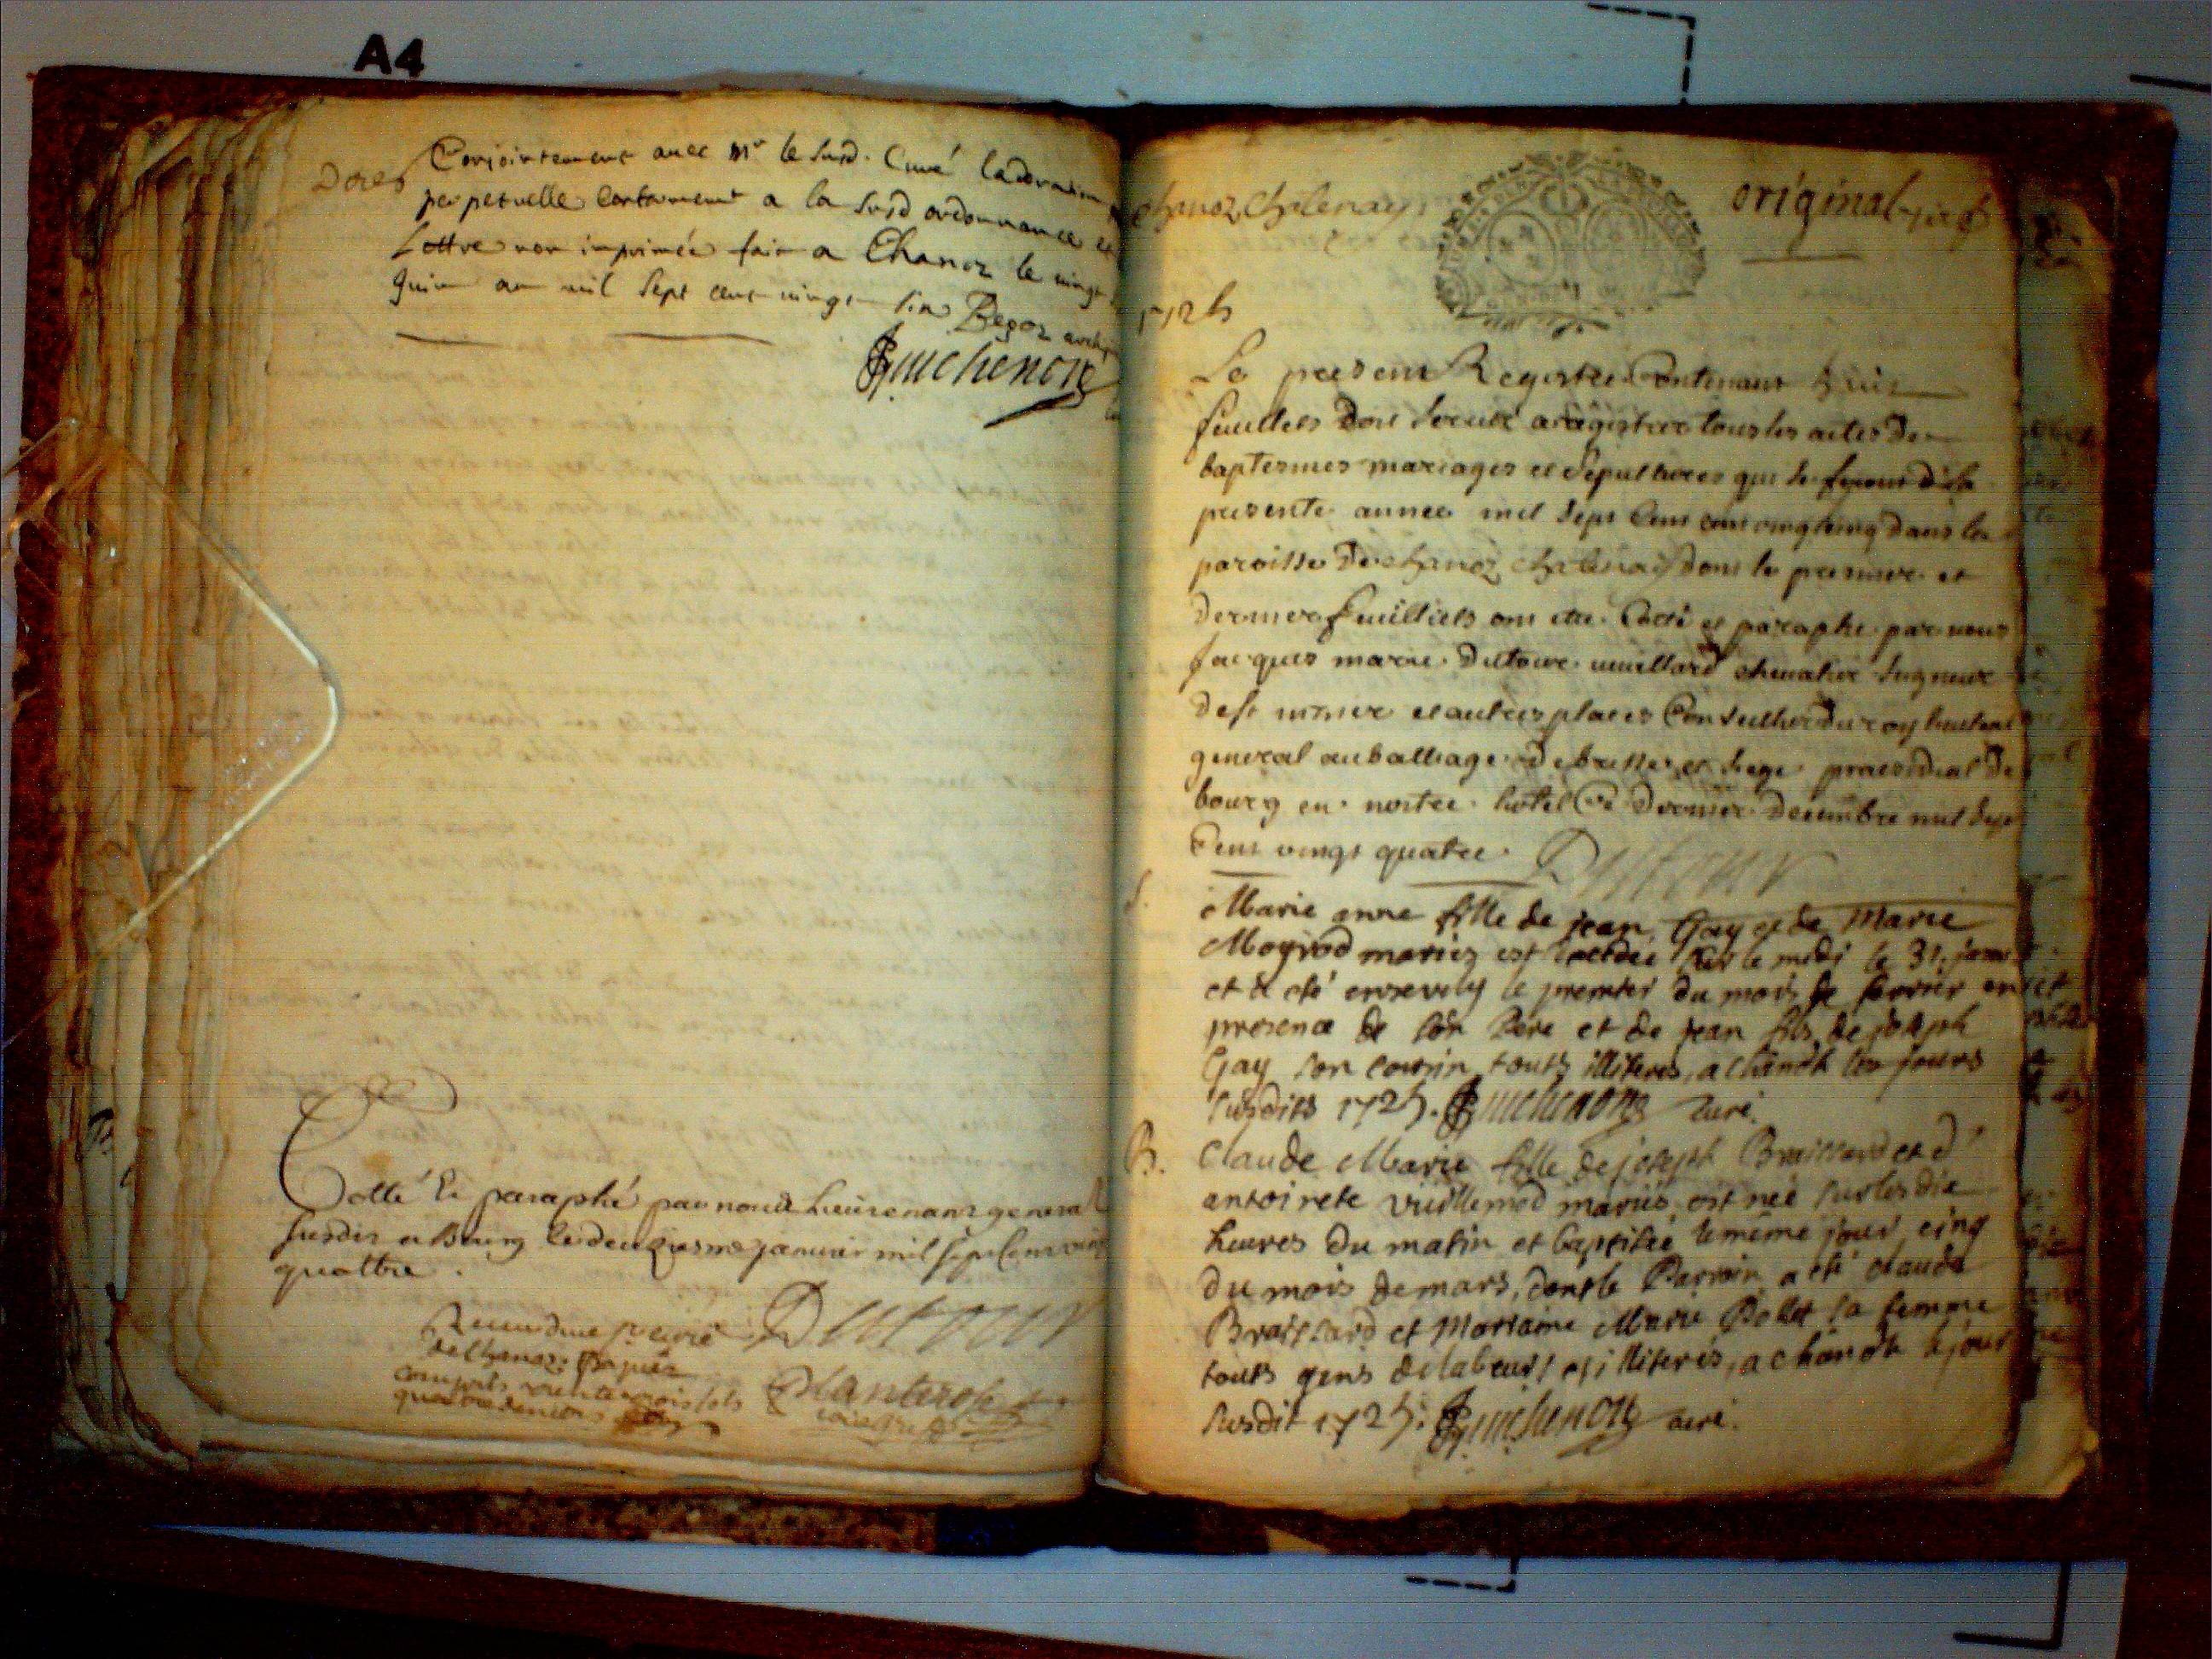 A4
Conjointement avec Mr le susd. Curé ladoration
perpetuelle Conformement a la susd ordonnance et
Lettre non imprimée fait a Chanoz le vingt
Juin an mil Sept cent vingt
Begoz
Guichenon
Cotté & paraphé par nous Lieutenant general
susdit a Bourg le deuxiesme janvier mil sept cent vingt
quattre.
Dutour
de Chanoz. papier
compris trente trois sols
quatre deniers
Chanoz Chatenay
original
1725
Le present Registre Contenant huit
feuillets dont servir a registrer tous les actes de
baptesmes mariages et sepultures qui se feront
presente annee mil sept cent vingt cinq dans la
paroisse de chanoz chatenay dont le premier et
dernier feuillets ont été Cotté et paraphé par nous
Jacques marie dutour vuillard chevalier seigneur
de st et autres places Conseiller du roy lieutenant
general au balliage de bresse et siege praesidial de
bourg en nostre hotel Ce dernier decembre mil sept
Cent vingt quatre.
Dutour
S.
Marie anne fille de jean Gay et de Marie
Moyrod mariez est decedée sur le midi le 31. janv
et a eté ensevely le premier du mois de fevrier en
presence de son Pere et de jean fils de joseph
Gay son cousin touts illiterés, a Chanoz les jours
susdits 1725. Guichenon curé.
B.
Claude Marie fille de joseph Braissard et d'
antoinete vuillemod mariés est née sur les dix
heures du matin et baptisée le même jour cinq
du mois de mars, dont le Parrain a eté claude
Braissard et Marraine Marie Bollet sa femme
touts gens de labeur et illiterés, a chanoz le jour
susdit 1725. Guichenon curé.